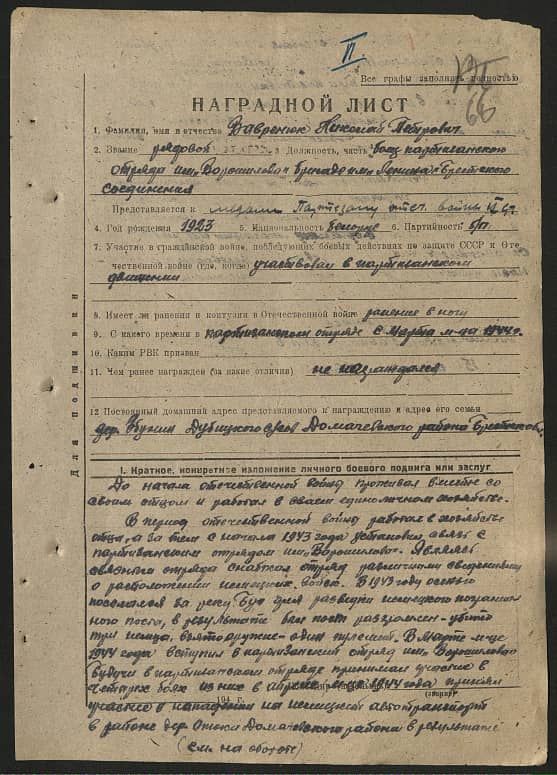 П
Все графы заполнять полностью
66
НАГРАДНОЙ ЛИСТ
1. Фамилия, имя и отчество Вавренюк Николай Петрович
2. Звание рядовой 3. Должность, часть боец партизанского
отряда им. Ворошилова бригады им. Ленина Брестского
соединения
Представляется к медали Партизану отеч. войны II ст.
4. Год рождения 1923 5. Национальность белорус 6. Партийность б/п
7. Участие в гражданской войне, последующих боевых действиях по защите СССР и Оте-
чественной войне (где, когда) участвовал в партизанском
движении
8. Имеет ли ранения и контузии в Отечественной войне ранение в ногу
9. С какого времени в партизанском отряде с марта м-ца 1944 г.
10. Каким РВК призван
11. Чем ранее награжден (за какие отличия) не награждался
12 Постоянный домашний адрес представляемого к награждению и адрес его семьи
дер. Дубицкого с/сов Домачевского района Брестской
Для подшивки
I. Краткое, конкретное изложение личного боевого подвига или заслуг
До начала отечественной войны проживал вместе со
своим отцом и работал в своем единоличном хозяйстве.
В период отечественной войны работал в хозяйстве
отца, а за тем с начала 1943 года установил связь с
партизанским отрядом им. Ворошилова. Являясь
связным отряда снабжал отряд различными сведениями
о расположении немецких войск. В 1943 году осенью
посылался за реку Буг для разведки немецкого погранич
ного поста, в результате был пост разгромлен - убито
три немца, взято оружие - один пулемет. В Марте м-це
1944 года вступил в партизанский отряд им. Ворошилова
будучи в партизанском отряде принимал участие в
четырех боях из них в апреле м-це 1944 года принял
участие в нападении на немецкий автотранспорт
в районе дер. Домачевского района в результате
(см. на обороте)